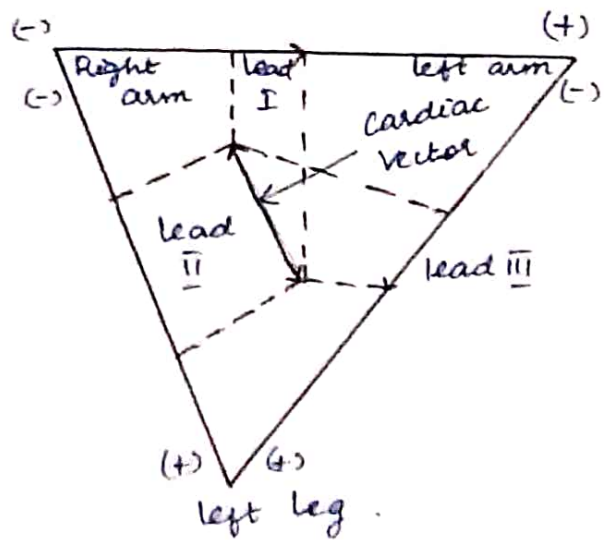 (-)
(+)
Right
arm
lead
I
left arm
(-)
(-)
cardiac
vector
lead
II
lead III
(+)
(+)
left leg.